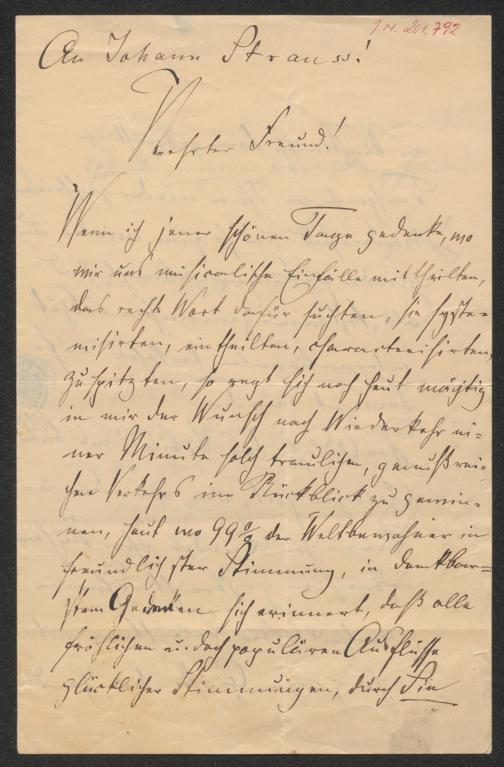 I.N. 201.792
An Johann Strauss!
Verehrter Freund!
Wenn ich jener schönen Tage gedenke, wo
wir uns musicalische Einfälle mittheilten,
das rechte Wort dafür suchten, sie syste-
misirten, eintheilten, characterisirten,
zuspitzten, so regt sich noch heut mächtig
in mir der Wunsch nach Wiederkehr ei-
ner Minute solch traulichen, genußrei-
chen Verkehrs im Rückblick zu gewin-
nen, heut wo 99% der Weltbewohner in
freundlichster Stimmung, in dankbar-
stem Gedenken sich erinnert, daß alle
fröhlichen u. doch populären Ausflüsse
glücklicher Stimmungen, durch Sie